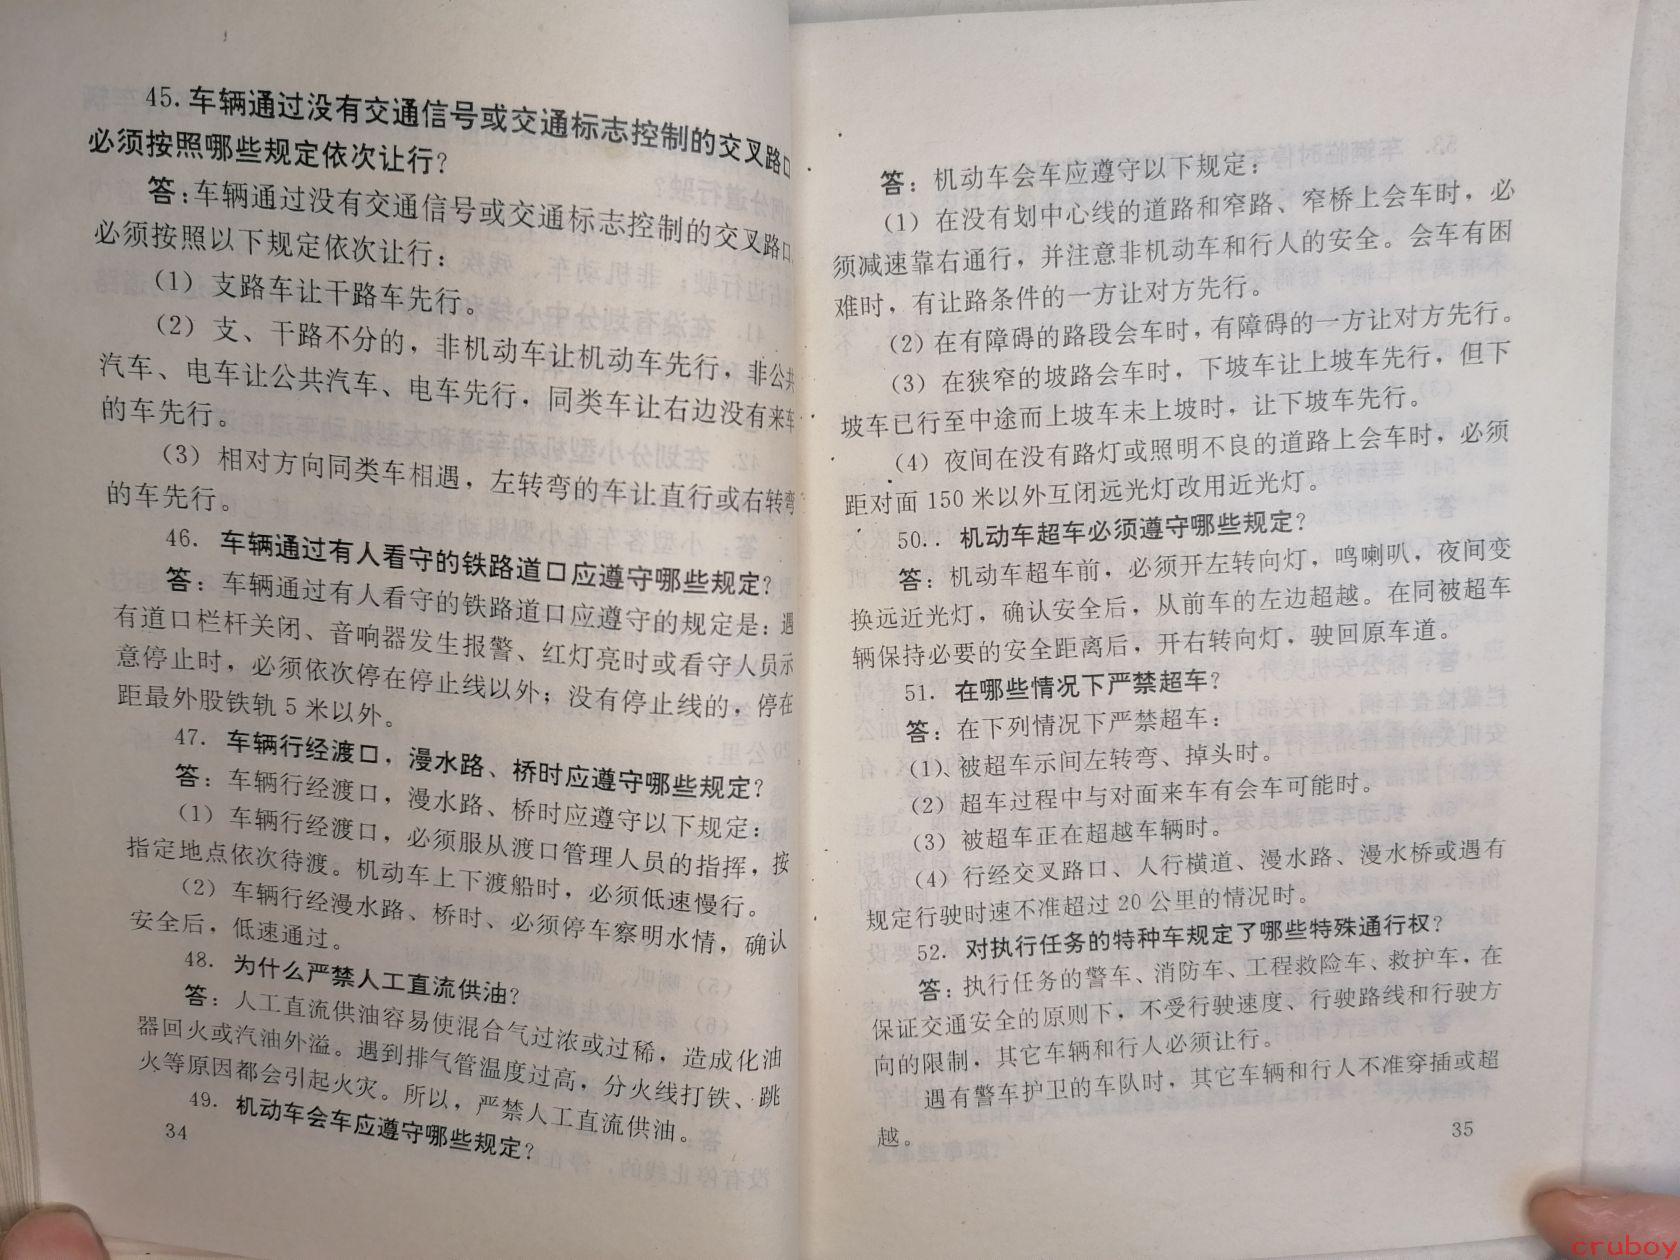 45. 车辆通过没有交通信号或交通标志控制的交叉路口
必须按照哪些规定依次让行?
答：车辆通过没有交通信号或交通标志控制的交叉路口
必须按照以下规定依次让行：
(1) 支路车让干路车先行。
(2) 支、干路不分的，非机动车让机动车先行，非公共
汽车、电车让公共汽车、电车先行，同类车让右边没有来车
的车先行。
(3) 相对方向同类车相遇，左转弯的车让直行或右转弯
的车先行。
46. 车辆通过有人看守的铁路道口应遵守哪些规定?
答：车辆通过有人看守的铁路道口应遵守的规定是：遇
有道口栏杆关闭、音响器发生报警、红灯亮时或看守人员示
意停止时，必须依次停在停止线以外；没有停止线的，停在
距最外股铁轨 5 米以外。
47. 车辆行经渡口，漫水路、桥时应遵守哪些规定?
答：车辆行经渡口，漫水路、桥时应遵守以下规定：
(1) 车辆行经渡口，必须服从渡口管理人员的指挥，按
指定地点依次待渡。机动车上下渡船时，必须低速慢行。
(2) 车辆行经漫水路、桥时、必须停车察明水情，确认
安全后，低速通过。
48. 为什么严禁人工直流供油?
答：人工直流供油容易使混合气过浓或过稀，造成化油
器回火或汽油外溢。遇到排气管温度过高，分火线打铁、跳
火等原因都会引起火灾。所以，严禁人工直流供油。
49. 机动车会车应遵守哪些规定?
34
答：机动车会车应遵守以下规定：
(1) 在没有划中心线的道路和窄路、窄桥上会车时，必
须减速靠右通行，并注意非机动车和行人的安全。会车有困
难时，有让路条件的一方让对方先行。
(2) 在有障碍的路段会车时，有障碍的一方让对方先行。
(3) 在狭窄的坡路会车时，下坡车让上坡车先行，但下
坡车已行至中途而上坡车未上坡时，让下坡车先行。
(4) 夜间在没有路灯或照明不良的道路上会车时，必须
距对面 150 米以外互闭远光灯改用近光灯。
50.. 机动车超车必须遵守哪些规定?
答：机动车超车前，必须开左转向灯，鸣喇叭，夜间变
换远近光灯，确认安全后，从前车的左边超越。在同被超车
辆保持必要的安全距离后，开右转向灯，驶回原车道。
51. 在哪些情况下严禁超车?
答：在下列情况下严禁超车：
(1)、被超车示间左转弯、掉头时。
(2) 超车过程中与对面来车有会车可能时。
(3) 被超车正在超越车辆时。
(4) 行经交叉路口、人行横道、漫水路、漫水桥或遇有
规定行驶时速不准超过 20 公里的情况时。
52. 对执行任务的特种车规定了哪些特殊通行权?
答：执行任务的警车、消防车、工程救险车、救护车，在
保证交通安全的原则下，不受行驶速度、行驶路线和行驶方
向的限制，其它车辆和行人必须让行。
遇有警车护卫的车队时，其它车辆和行人不准穿插或超
越。
35
cruboy